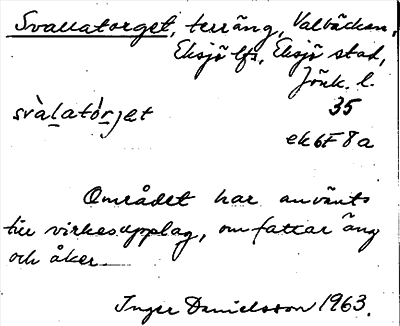 Svallatorget, terräng, Valbäcken,
Eksjö lfs, Eksjö stad,
Jönk. l.
svàlatórjet 35
ek 6F 8a
Området har använts
till virkesupplag, omfattar äng
och åker.
Inger Danielsson 1963.